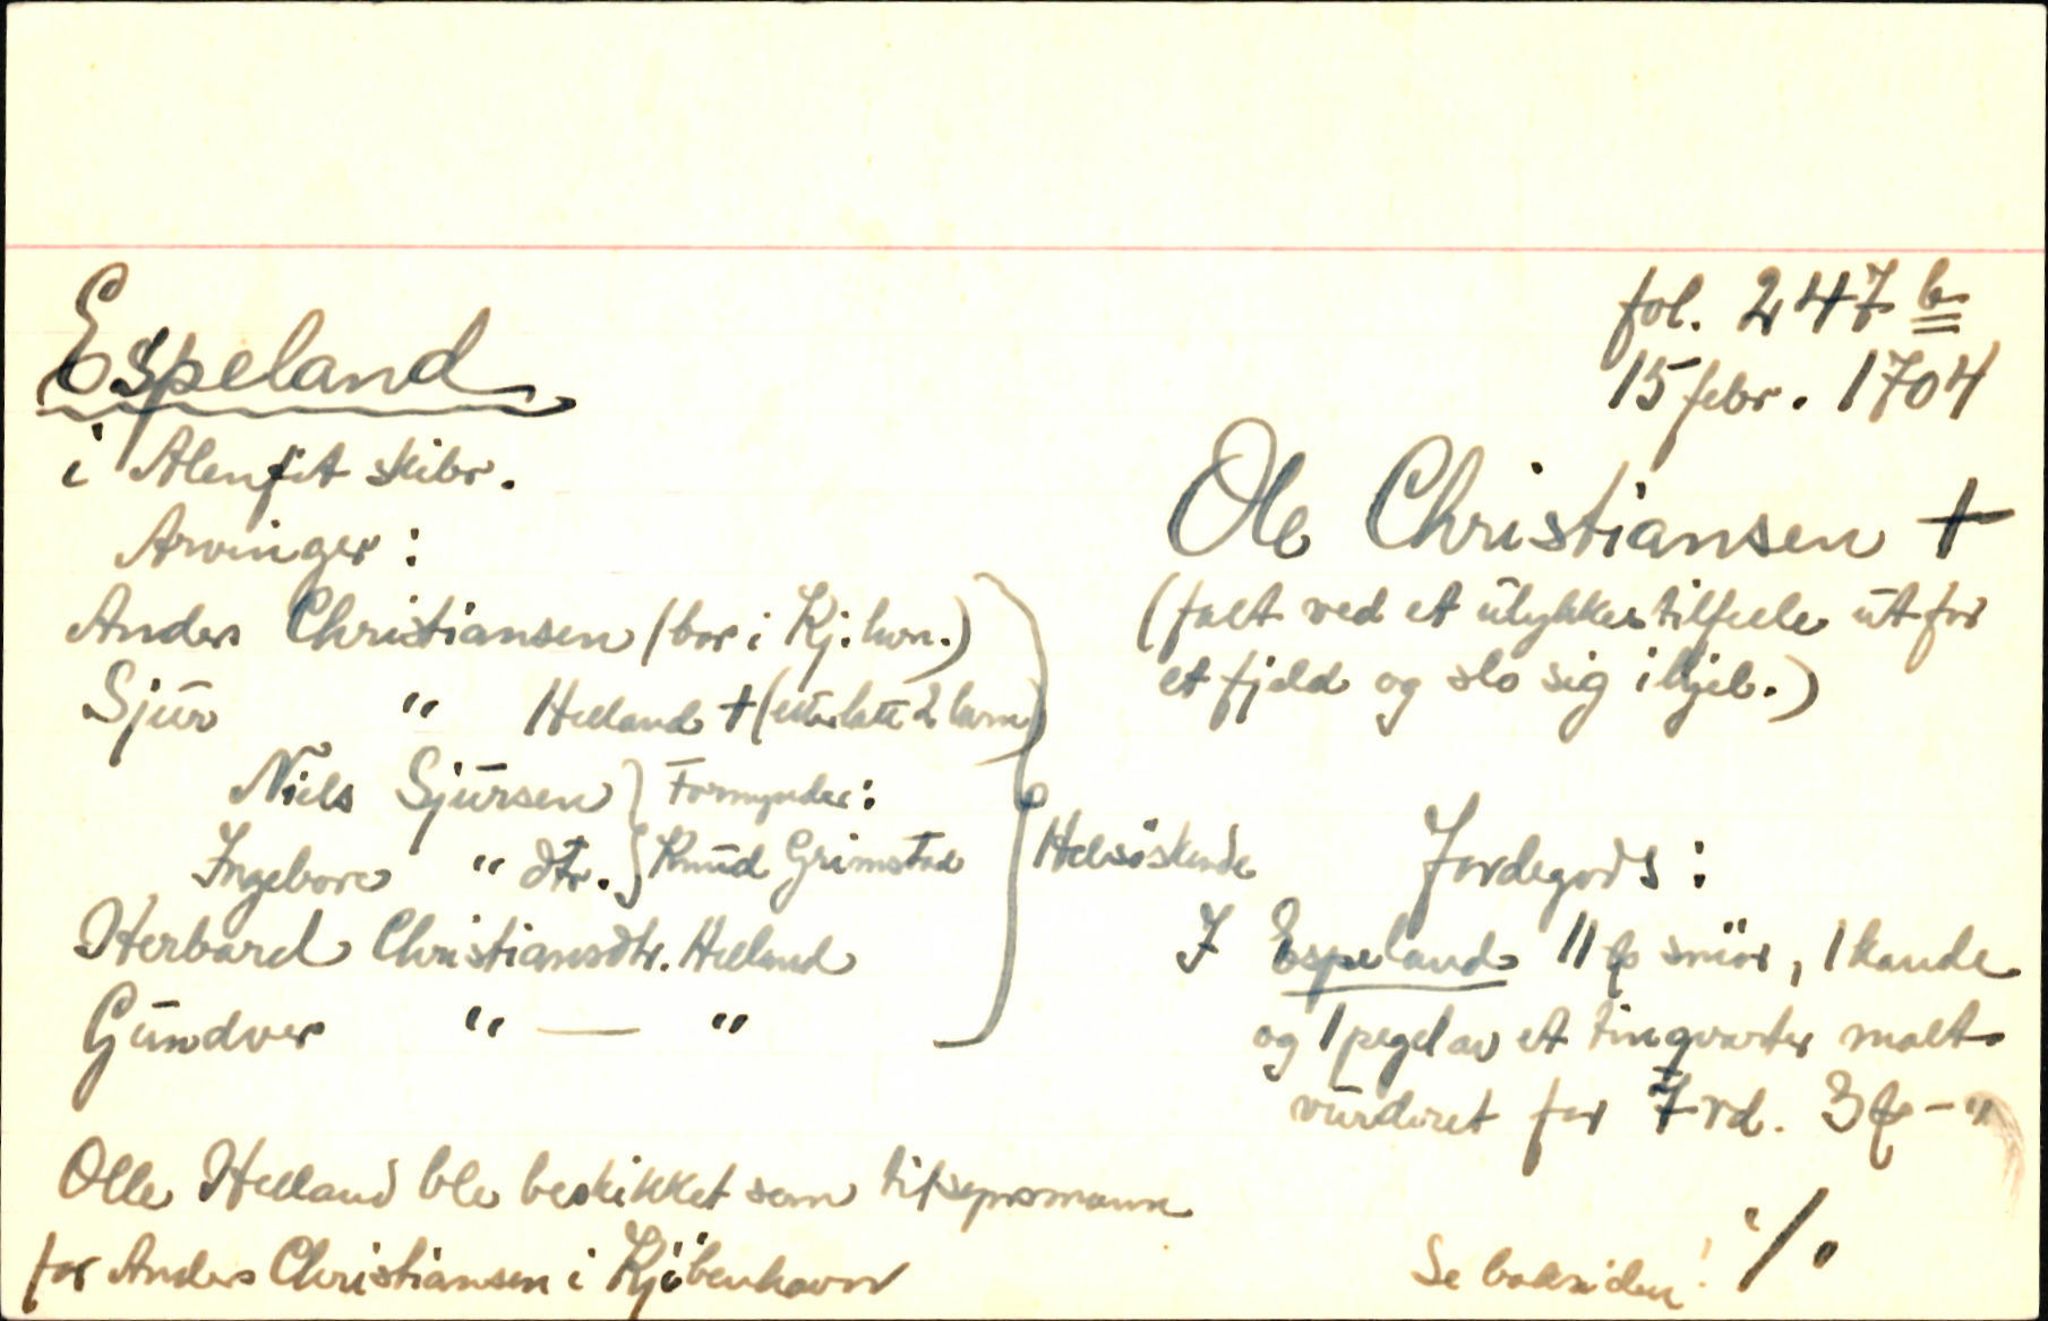 fol. 247 b
15 febr. 1704
Espeland
i Alenfit skibr.
Ole Christiansen +
(falt ved et ulykkestilfelle ut for
et fjeld og slo sig ihjel.)
Arvinger:
Anders Christiansen (bor i Kj.hvn.)
Sjur " Helland + (efterlatt 2 barn)
Niels Sjursen } Formynder:
Ingebore " dtr. } Knud Grimstad
Herbord Christiansdtr. Helland
Gundver " — "
Helsøskende
Jordegods:
I Espeland 11 smör, 1 kande
og 1 pegel av et tingvarter malt.
vurderet for 7 rd. 3 - "
Olle Helland ble beskikket som tilsynsmann
for Anders Christiansen i Kjöbenhavn
Se baksiden! ./.